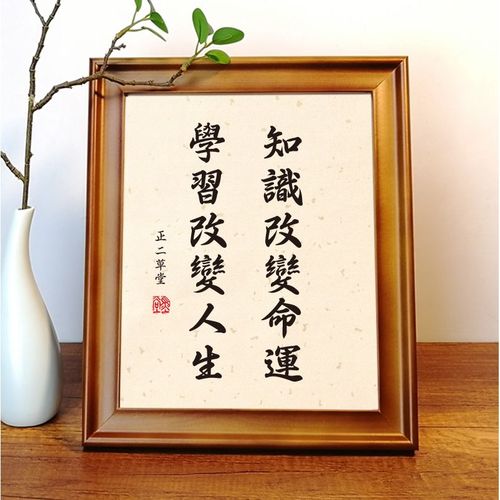 知識改變命運
學習改變人生
正二草堂